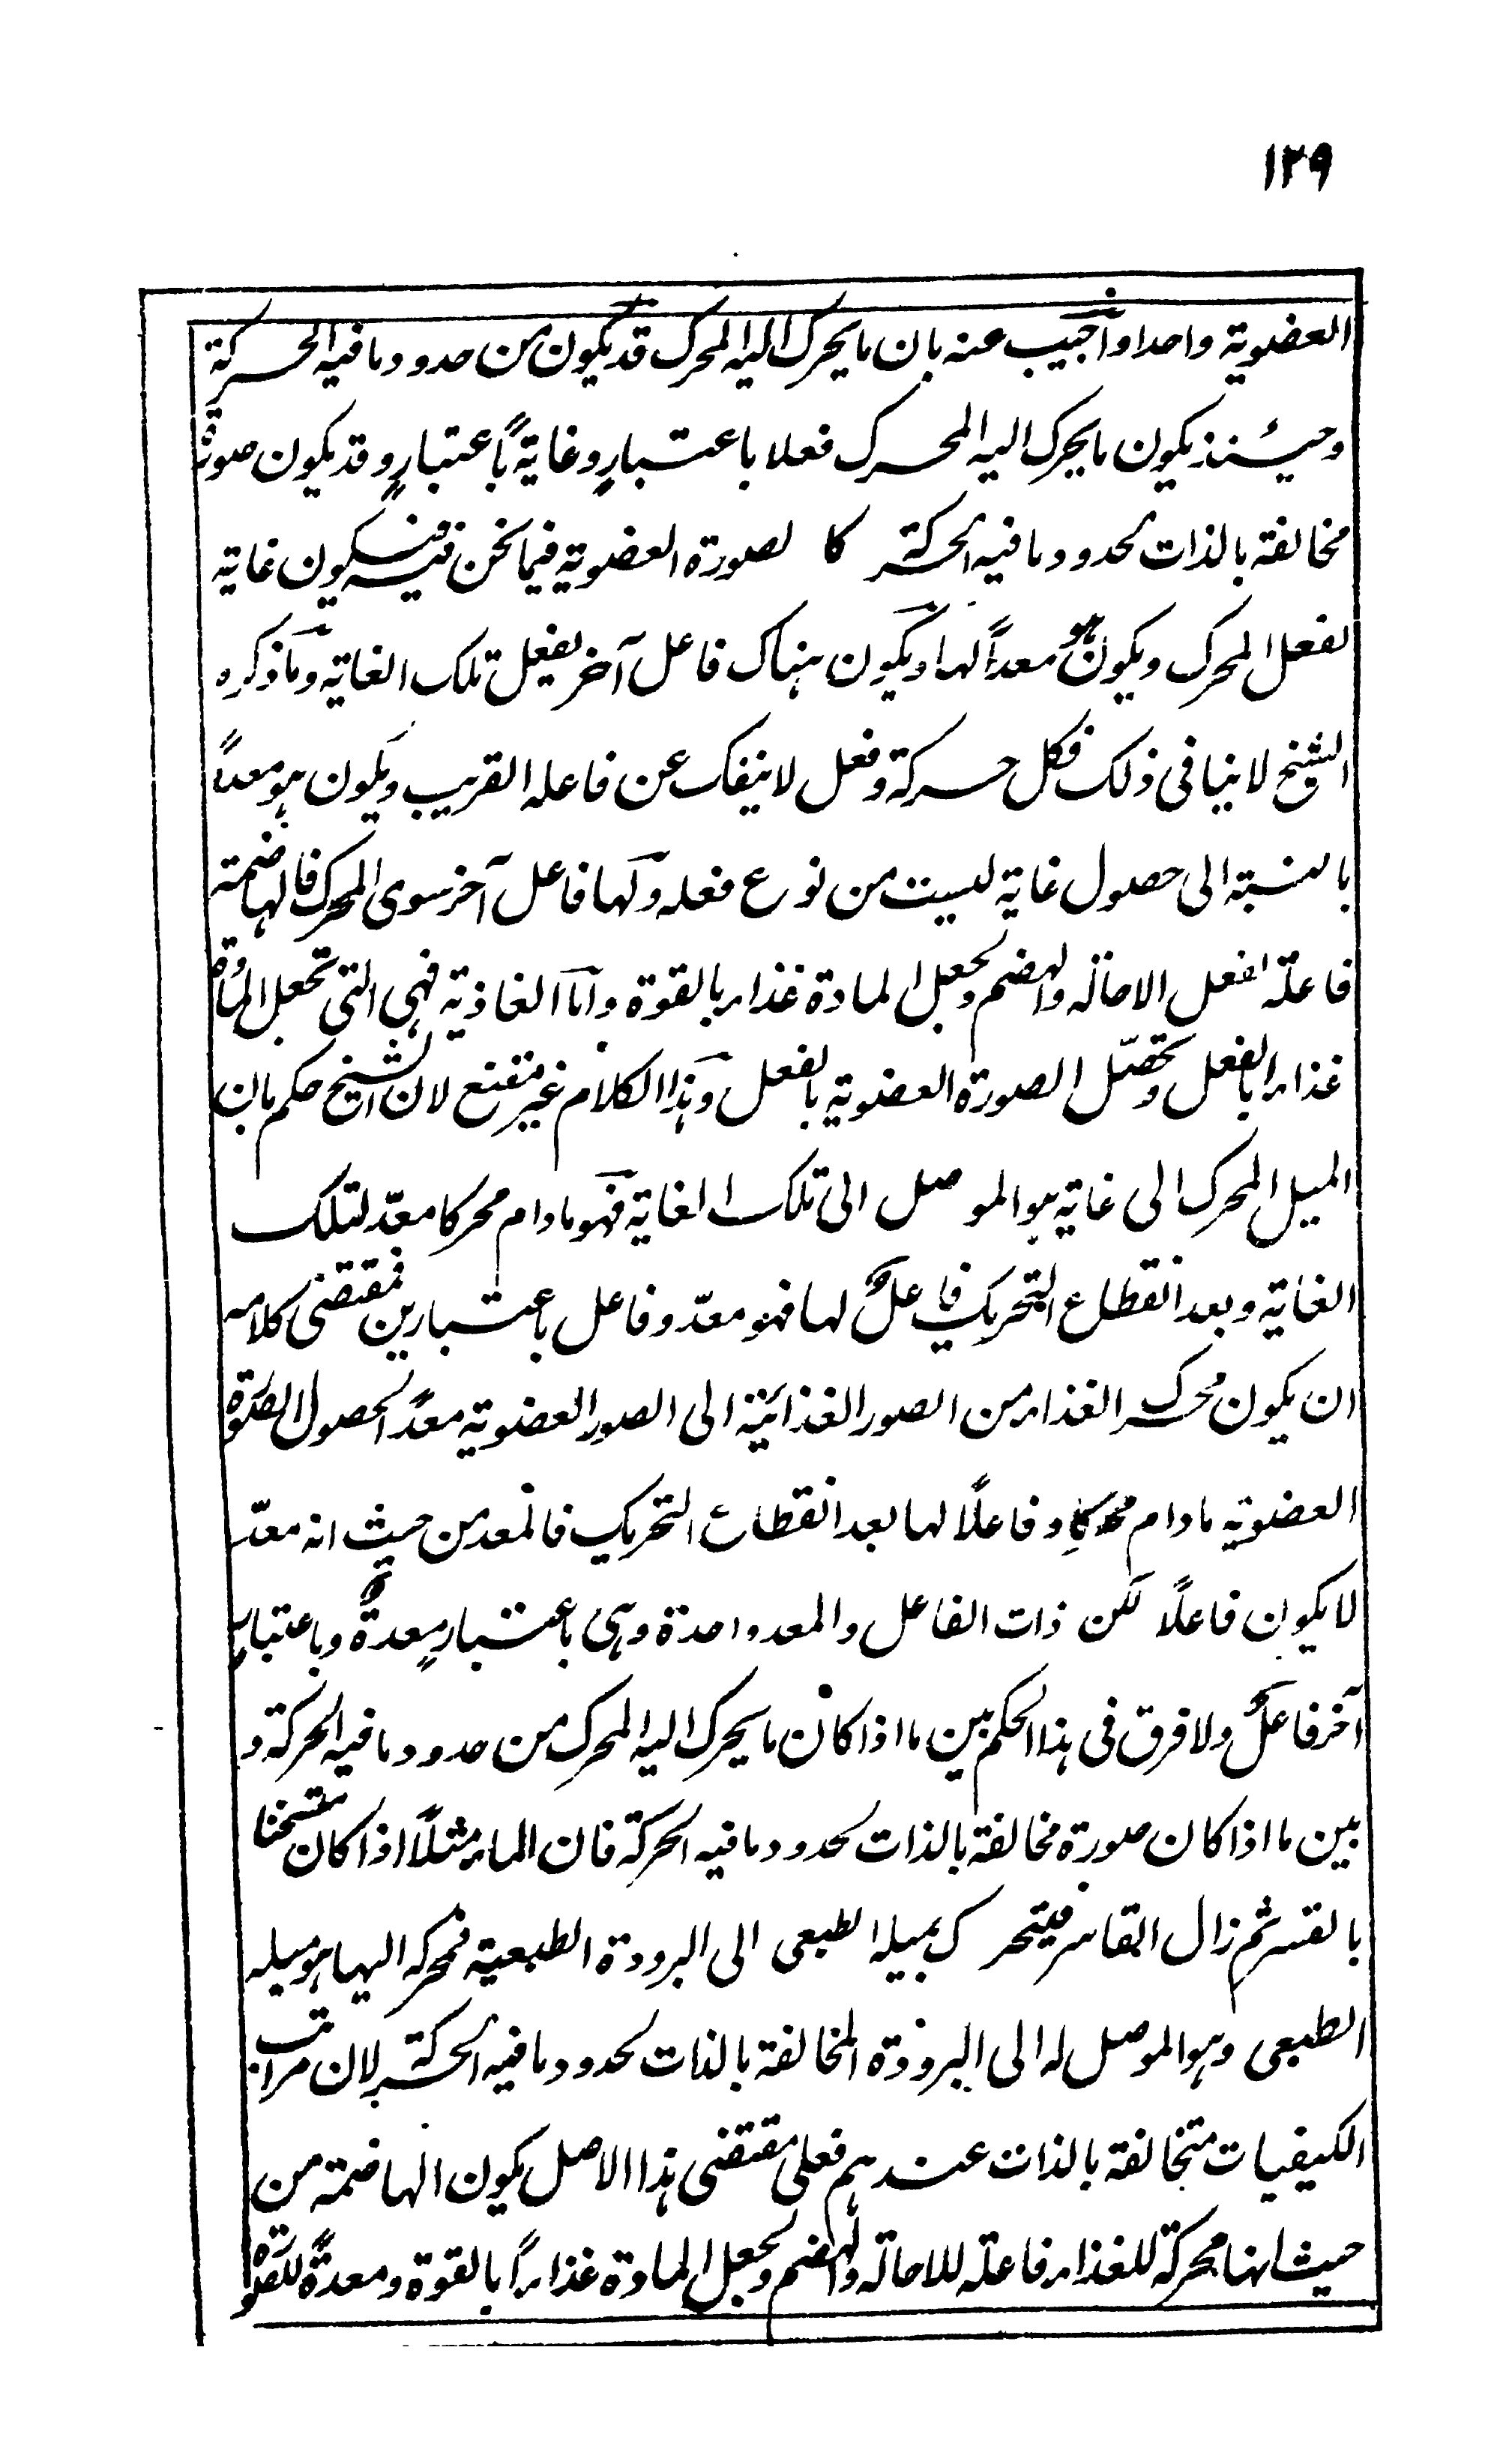 ١٢٩
العضوية واحدا واجيب عنه بان ما يحرك اليه المحرك قد يكون من حدود ما فيه الحركة
وحينئذ يكون ما يحرك اليه المحرك فعلا باعتبارٍ وغايةً باعتبارٍ وقد يكون صورة
مخالفة بالذات لحدود ما فيه الحركة كالصورة العضوية فيما نحن فيه فيكون غاية
لفعل المحرك ويكون هو معداً لها ويكون هناك فاعل آخر يفعل تلك الغاية وما ذكره
الشيخ لا ينافى ذلك فكل حركة وفعل لا ينفك عن فاعله القريب ويكون هو معداً
بالنسبة الى حصول غاية ليست من نوع فعله ولها فاعل آخر سوى المحرك فالهاضمة
فاعلة لفعل الاحالة والهضم وجعل المادة غذاء بالقوة واما الغاذية فهى التى تجعل المادة
غذاء بالفعل وتحصّل الصورة العضوية بالفعل وهذا الكلام غير مقنع لان الشيخ حكم بان
الميل المحرك الى غاية هو الموصل الى تلك الغاية فهو ما دام محركا معدّ لتلك
الغاية وبعد انقطاع التحريك فاعلٌ لها فهو معدّ وفاعل باعتبارين فمقتضى كلامه
ان يكون محرك الغذاء من الصور الغذائية الى الصور العضوية معدًّا لحصول الصورة
العضوية ما دام محركا وفاعلًا لها بعد انقطاع التحريك فالمعد من حيث انه معدّ
لا يكون فاعلًا لكن ذات الفاعل والمعد واحدة وهى باعتبارٍ معدةٌ وباعتبارٍ
آخر فاعلٌ ولا فرق فى هذا الحكم بين ما اذا كان ما يحرك اليه المحرك من حدود ما فيه الحركة و
بين ما اذا كان صورة مخالفة بالذات لحدود ما فيه الحركة فان الماء مثلًا اذا كان متسخنا
بالقسر ثم زال القاسر فيتحرك بميله الطبعى الى البرودة الطبعية فمحركه اليها هو ميله
الطبعى وهو الموصل له الى البرودة المخالفة بالذات لحدود ما فيه الحركة لان مراتب
الكيفيات متخالفة بالذات عندهم فعلى مقتضى هذا الاصل يكون الهاضمة من
حيث انها محركة للغذاء فاعلة للاحالة والهضم وجعل المادة غذاءً بالقوة ومعدةً للصورة